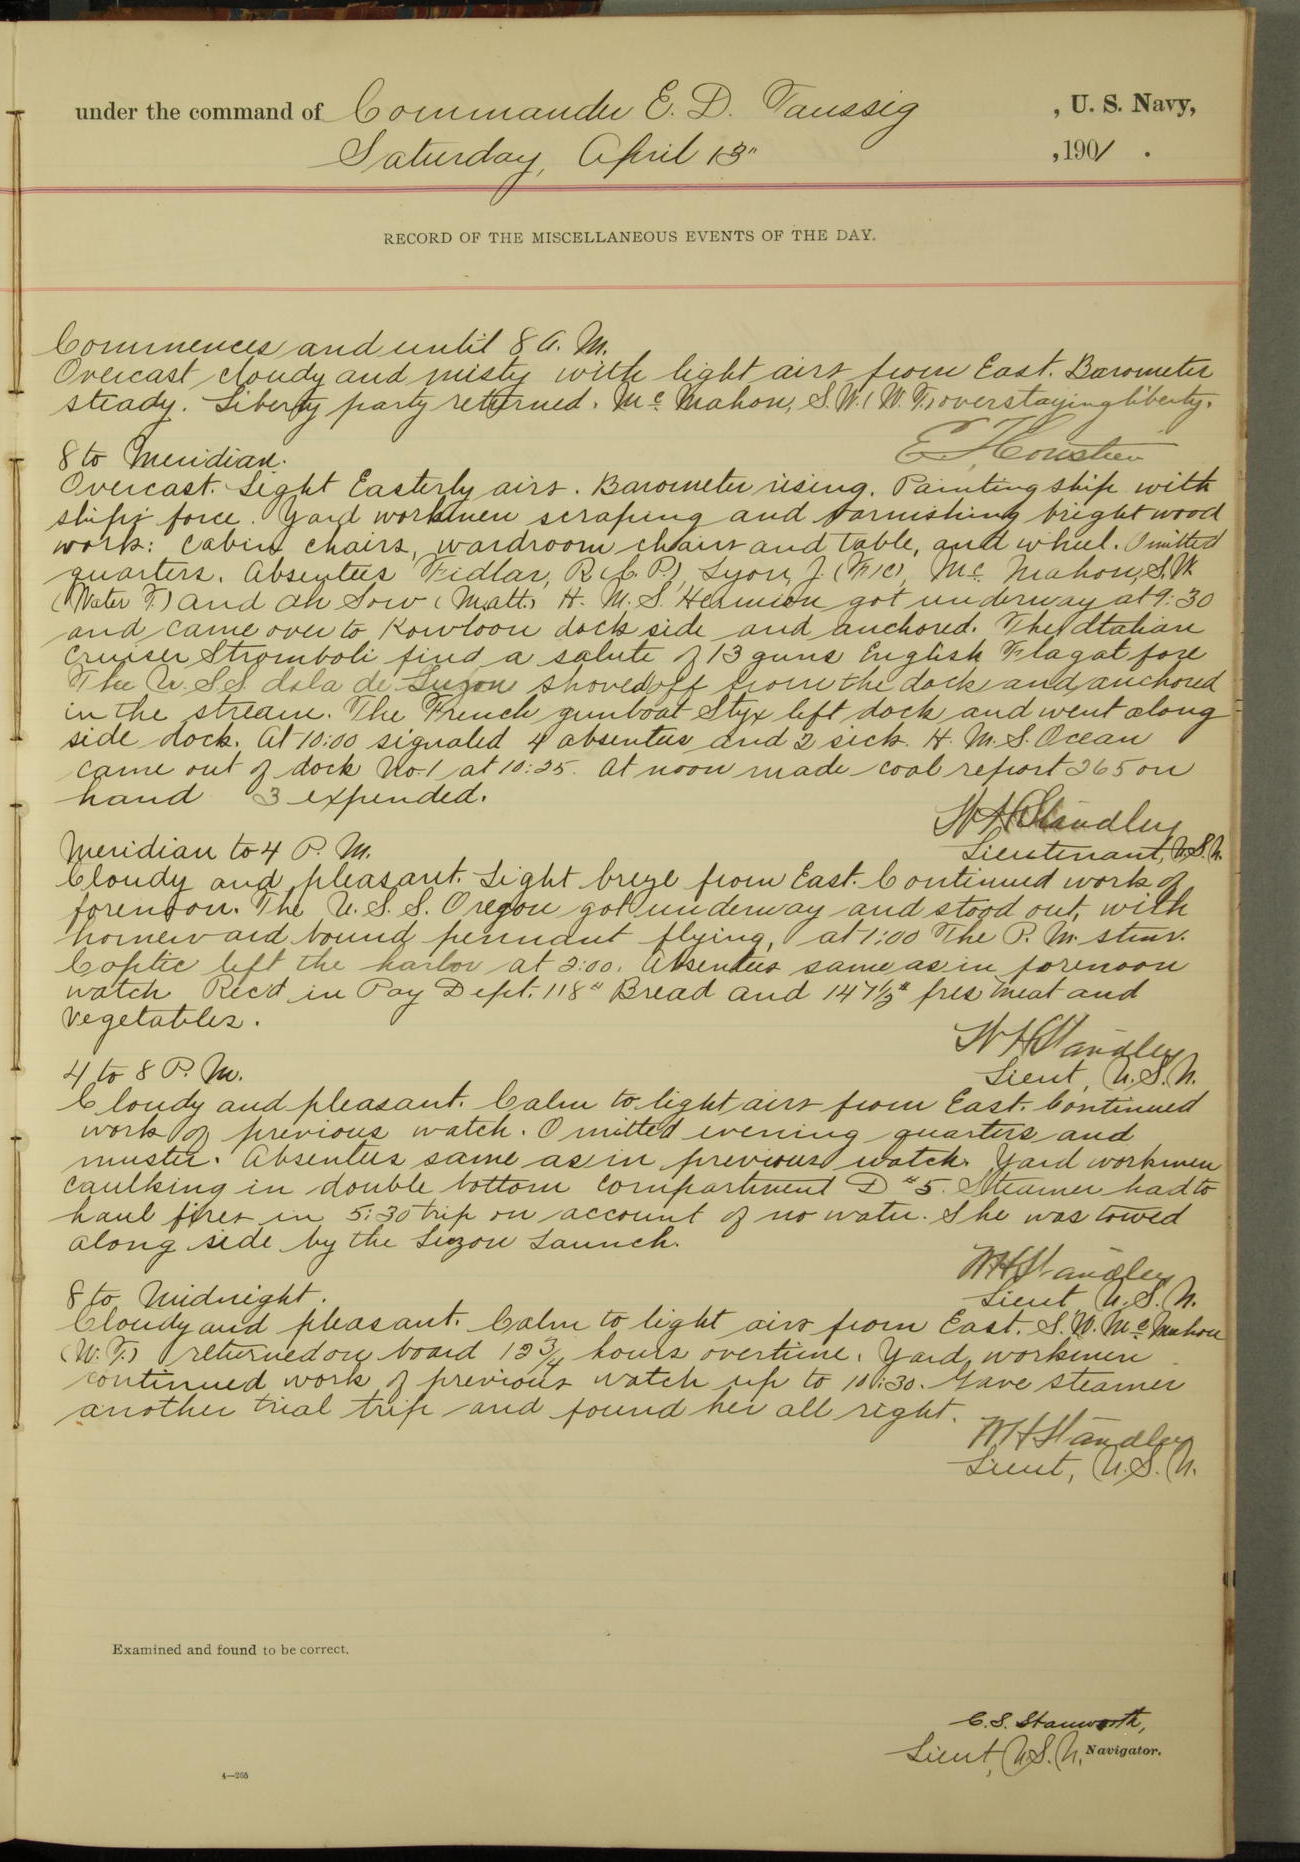 under the command of Commander E. D. Taussig , U. S. Navy,
Saturday, April 13" , 1901 .
RECORD OF THE MISCELLANEOUS EVENTS OF THE DAY.
Commences and until 8 A. M.
Overcast cloudy and misty with light airs from East. Barometer
steady. Liberty party returned. McMahon, S.W. (W.T.) overstaying liberty.
E. Houstien
8 to Meridian.
Overcast. Light Easterly airs. Barometer rising. Painting ship with
ships force. Yard workmen scraping and varnishing bright wood
work: cabin chairs, wardroom chairs and table, and wheel. Omitted
quarters. Absentees Fidlar, R (C.P.), Lyon, J. (F1c), McMahon, S.W.
(Water T.) and Ah Sow (Matt.) H. M. S. Hermion got underway at 9:30
and came over to Kowloon dock side and anchored. The Italian
cruiser Stromboli fired a salute of 13 guns English Flag at fore
The U.S.S Isla de Luzon shoved off from the dock and anchored
in the stream. The French gunboat Styx left dock and went along
side dock. At 10:00 signaled 4 absentees and 2 sick. H. M. S. Ocean
came out of dock No. 1 at 10:25. At noon made coal report 265 on
hand 3 expended.
W H Standley
Lieutenant, U.S.N.
Meridian to 4 P. M.
Cloudy and pleasant. Light breze from East. Continued work of
forenoon. The U. S. S. Oregon got underway and stood out, with
homeward bound pennant flying, at 1:00 The P. M. stmr.
Coptic left the harbor at 2:00. Absentees same as in forenoon
watch Rec'd in Pay Dept. 118# Bread and 147½# fres meat and
vegetables.
W H Standley
Lieut, U.S.N.
4 to 8 P. M.
Cloudy and pleasant. Calm to light airs from East. Continued
work of previous watch. Omitted evening quarters and
muster. Absentees same as in previous watch. Yard workmen
caulking in double bottom compartment D "5. Steamer had to
haul fires in 5:30 trip on account of no water. She was towed
along side by the Luzon Launch.
W H Standley
Lieut U.S.N.
8 to Midnight.
Cloudy and pleasant. Calm to light airs from East. S.W. McMahon
(W.T.) returned on board 12 3/4 hours overtime. Yard workmen
continued work of previous watch up to 10:30. Gave steamer
another trial trip and found her all right.
W H Standley
Lieut, U.S.N.
Examined and found to be correct.
C. S. Stanworth,
Lieut, U.S.N, Navigator.
4—265